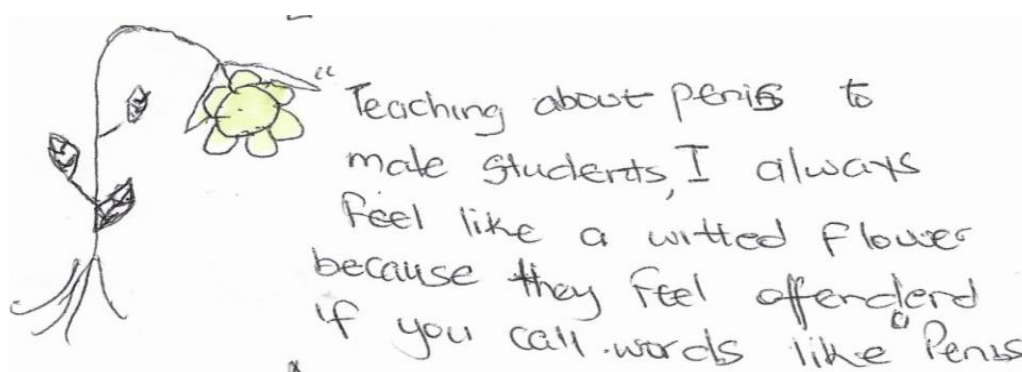 "Teaching about penis to
male students, I always
feel like a witted flower
because they feel offenderd
if you call words like "Penis